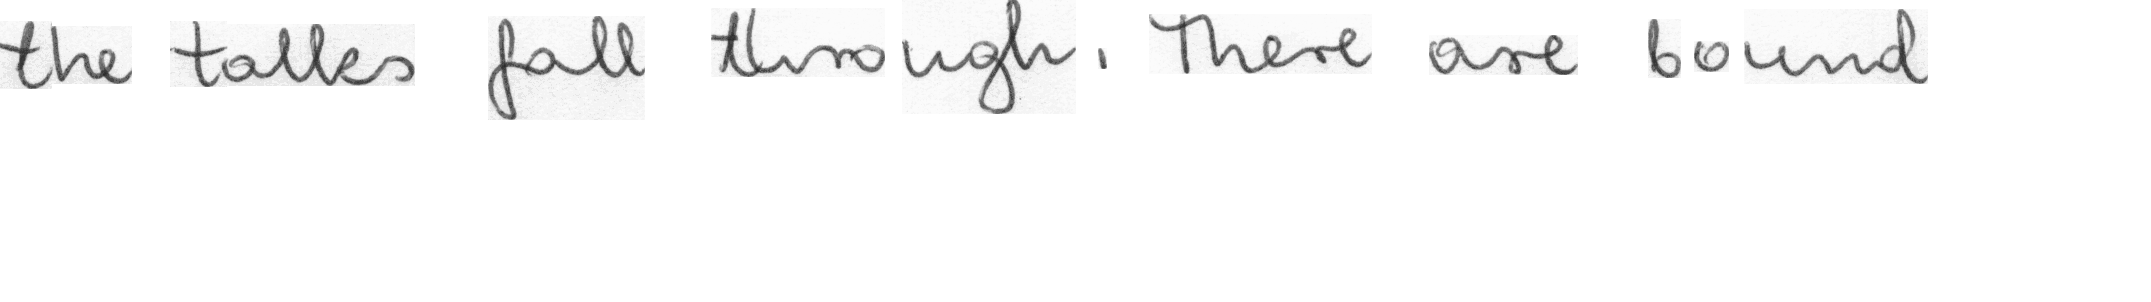 the talks fall through. There are bound